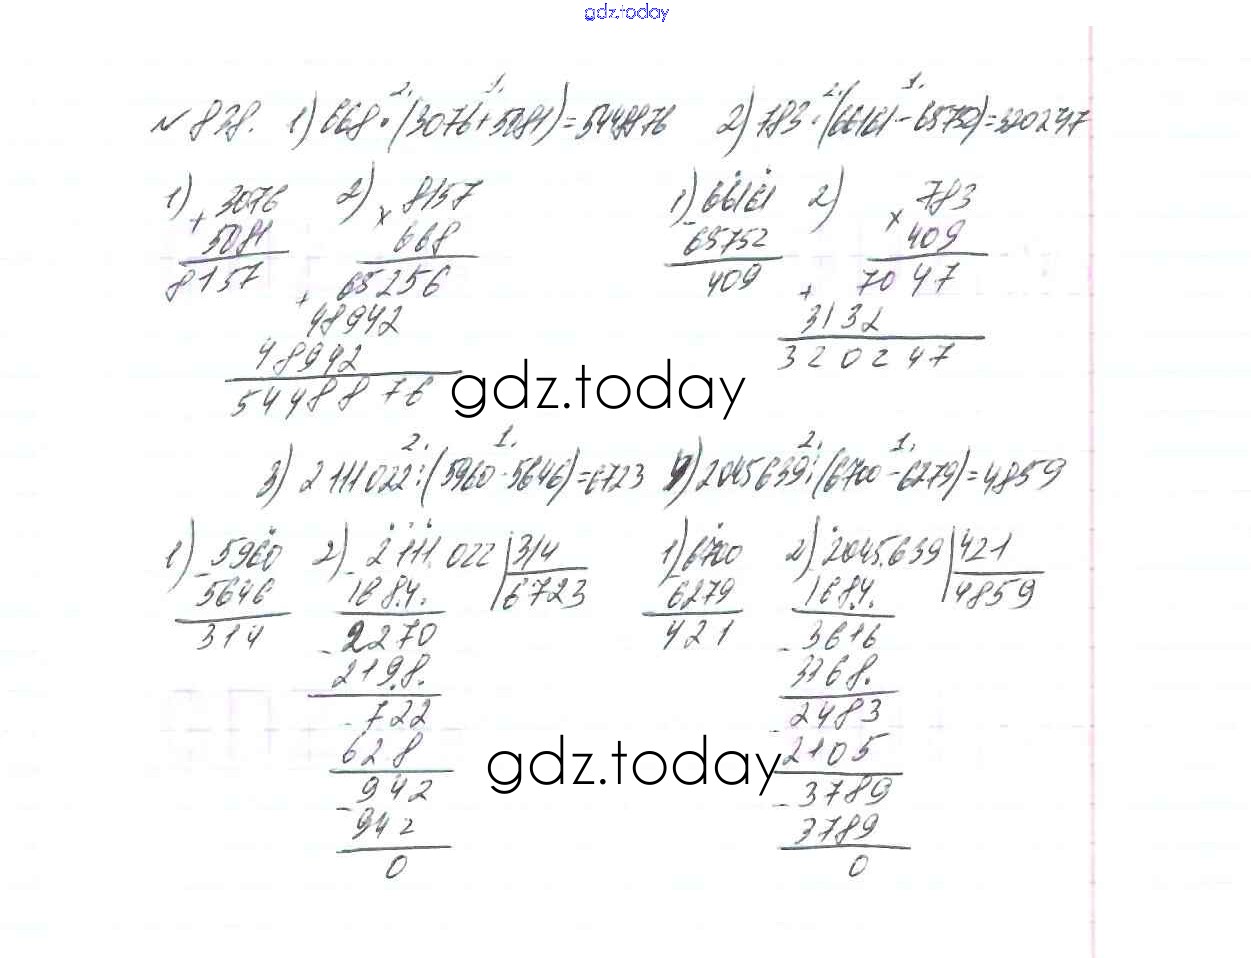 gdz.today
№ 838. 1) 668 · (3076 + 5081) = 5448876 2) 783 · (66161 - 65752) = 320247
1) 3076 2) 8157 1) 66161 2) 783
+ 5081 × 668 - 65752 × 409
8157 65256 409 7047
+ 48942 + 3132
48942 320247
5448876
gdz.today
3) 2111022 : (5960 - 5646) = 6723 4) 2045639 : (6700 - 6279) = 4859
1) 5960 2) 2111022 | 314 1) 6700 2) 2045639 | 421
- 5646 - 1884 6723 - 6279 - 1684 4859
314 2270 421 3616
- 2198 - 3368
722 2483
- 628 - 2105
gdz.today
942 3789
- 942 - 3789
0 0